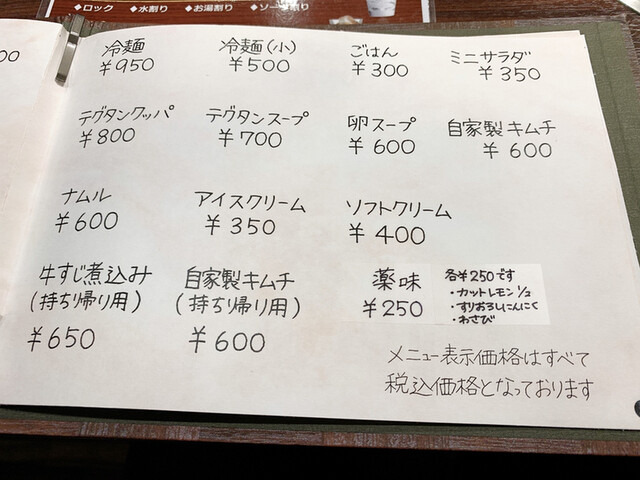 ◆ロック ◆水割り ◆お湯割り ◆ソーダ割り
00
冷麺 冷麺(小) ごはん ミニサラダ
¥950 ¥500 ¥300 ¥350
テグタンクッパ テグタンスープ 卵スープ 自家製キムチ
¥800 ¥700 ¥600 ¥600
ナムル アイスクリーム ソフトクリーム
¥600 ¥350 ¥400
牛すじ煮込み 自家製キムチ 薬味
(持ち帰り用) (持ち帰り用) ¥250
¥650 ¥600
各¥250です
・カットレモン1/2
・すりおろしにんにく
・わさび
メニュー表示価格はすべて
税込価格となっております